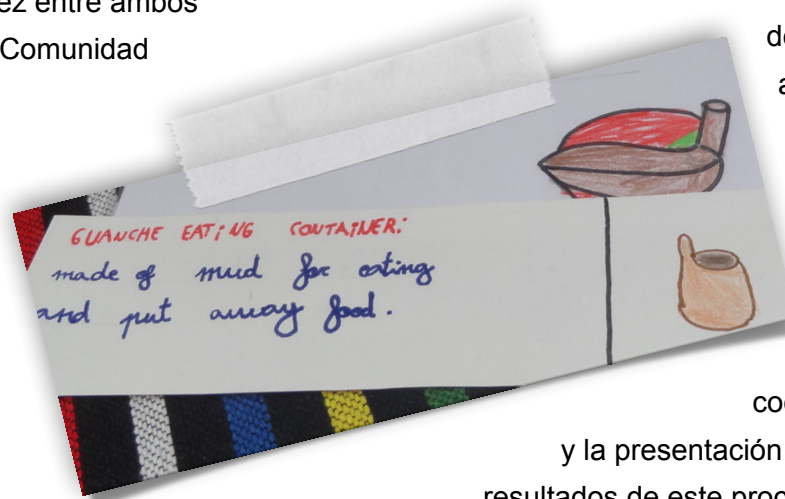 ez entre ambos
Comunidad
GUANCHE EATING CONTAINER:
made of mud for eating
and put away food.
y la presentación
resultados de este proc